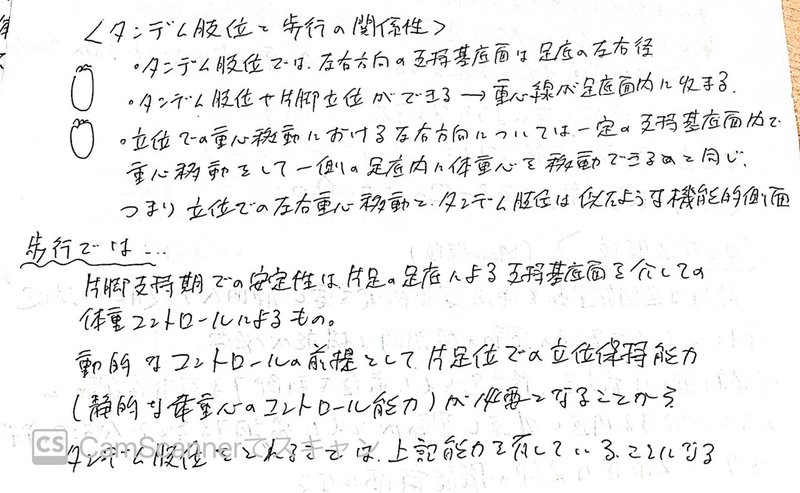 <タンデム肢位と歩行の関係性>
・タンデム肢位では、左右方向の支持基底面は足底の左右径
・タンデム肢位や片脚立位ができる→重心線が足底面内に収まる.
・立位での重心移動における左右方向については一定の支持基底面内で
重心移動をして一側の足底内に体重心を移動できるのと同じ.
つまり立位での左右重心移動とタンデム肢位は似たような機能的側面
歩行では…
片脚支持期での安定性は片足の足底による支持基底面を介しての
体重コントロールによるもの。
動的なコントロールの前提として片足位での立位保持能力
(静的な体重心のコントロール能力)が必要となることから
CS CamScannerでスキャン
タンデム肢位をとれるでは、上記能力を有している、ことになる